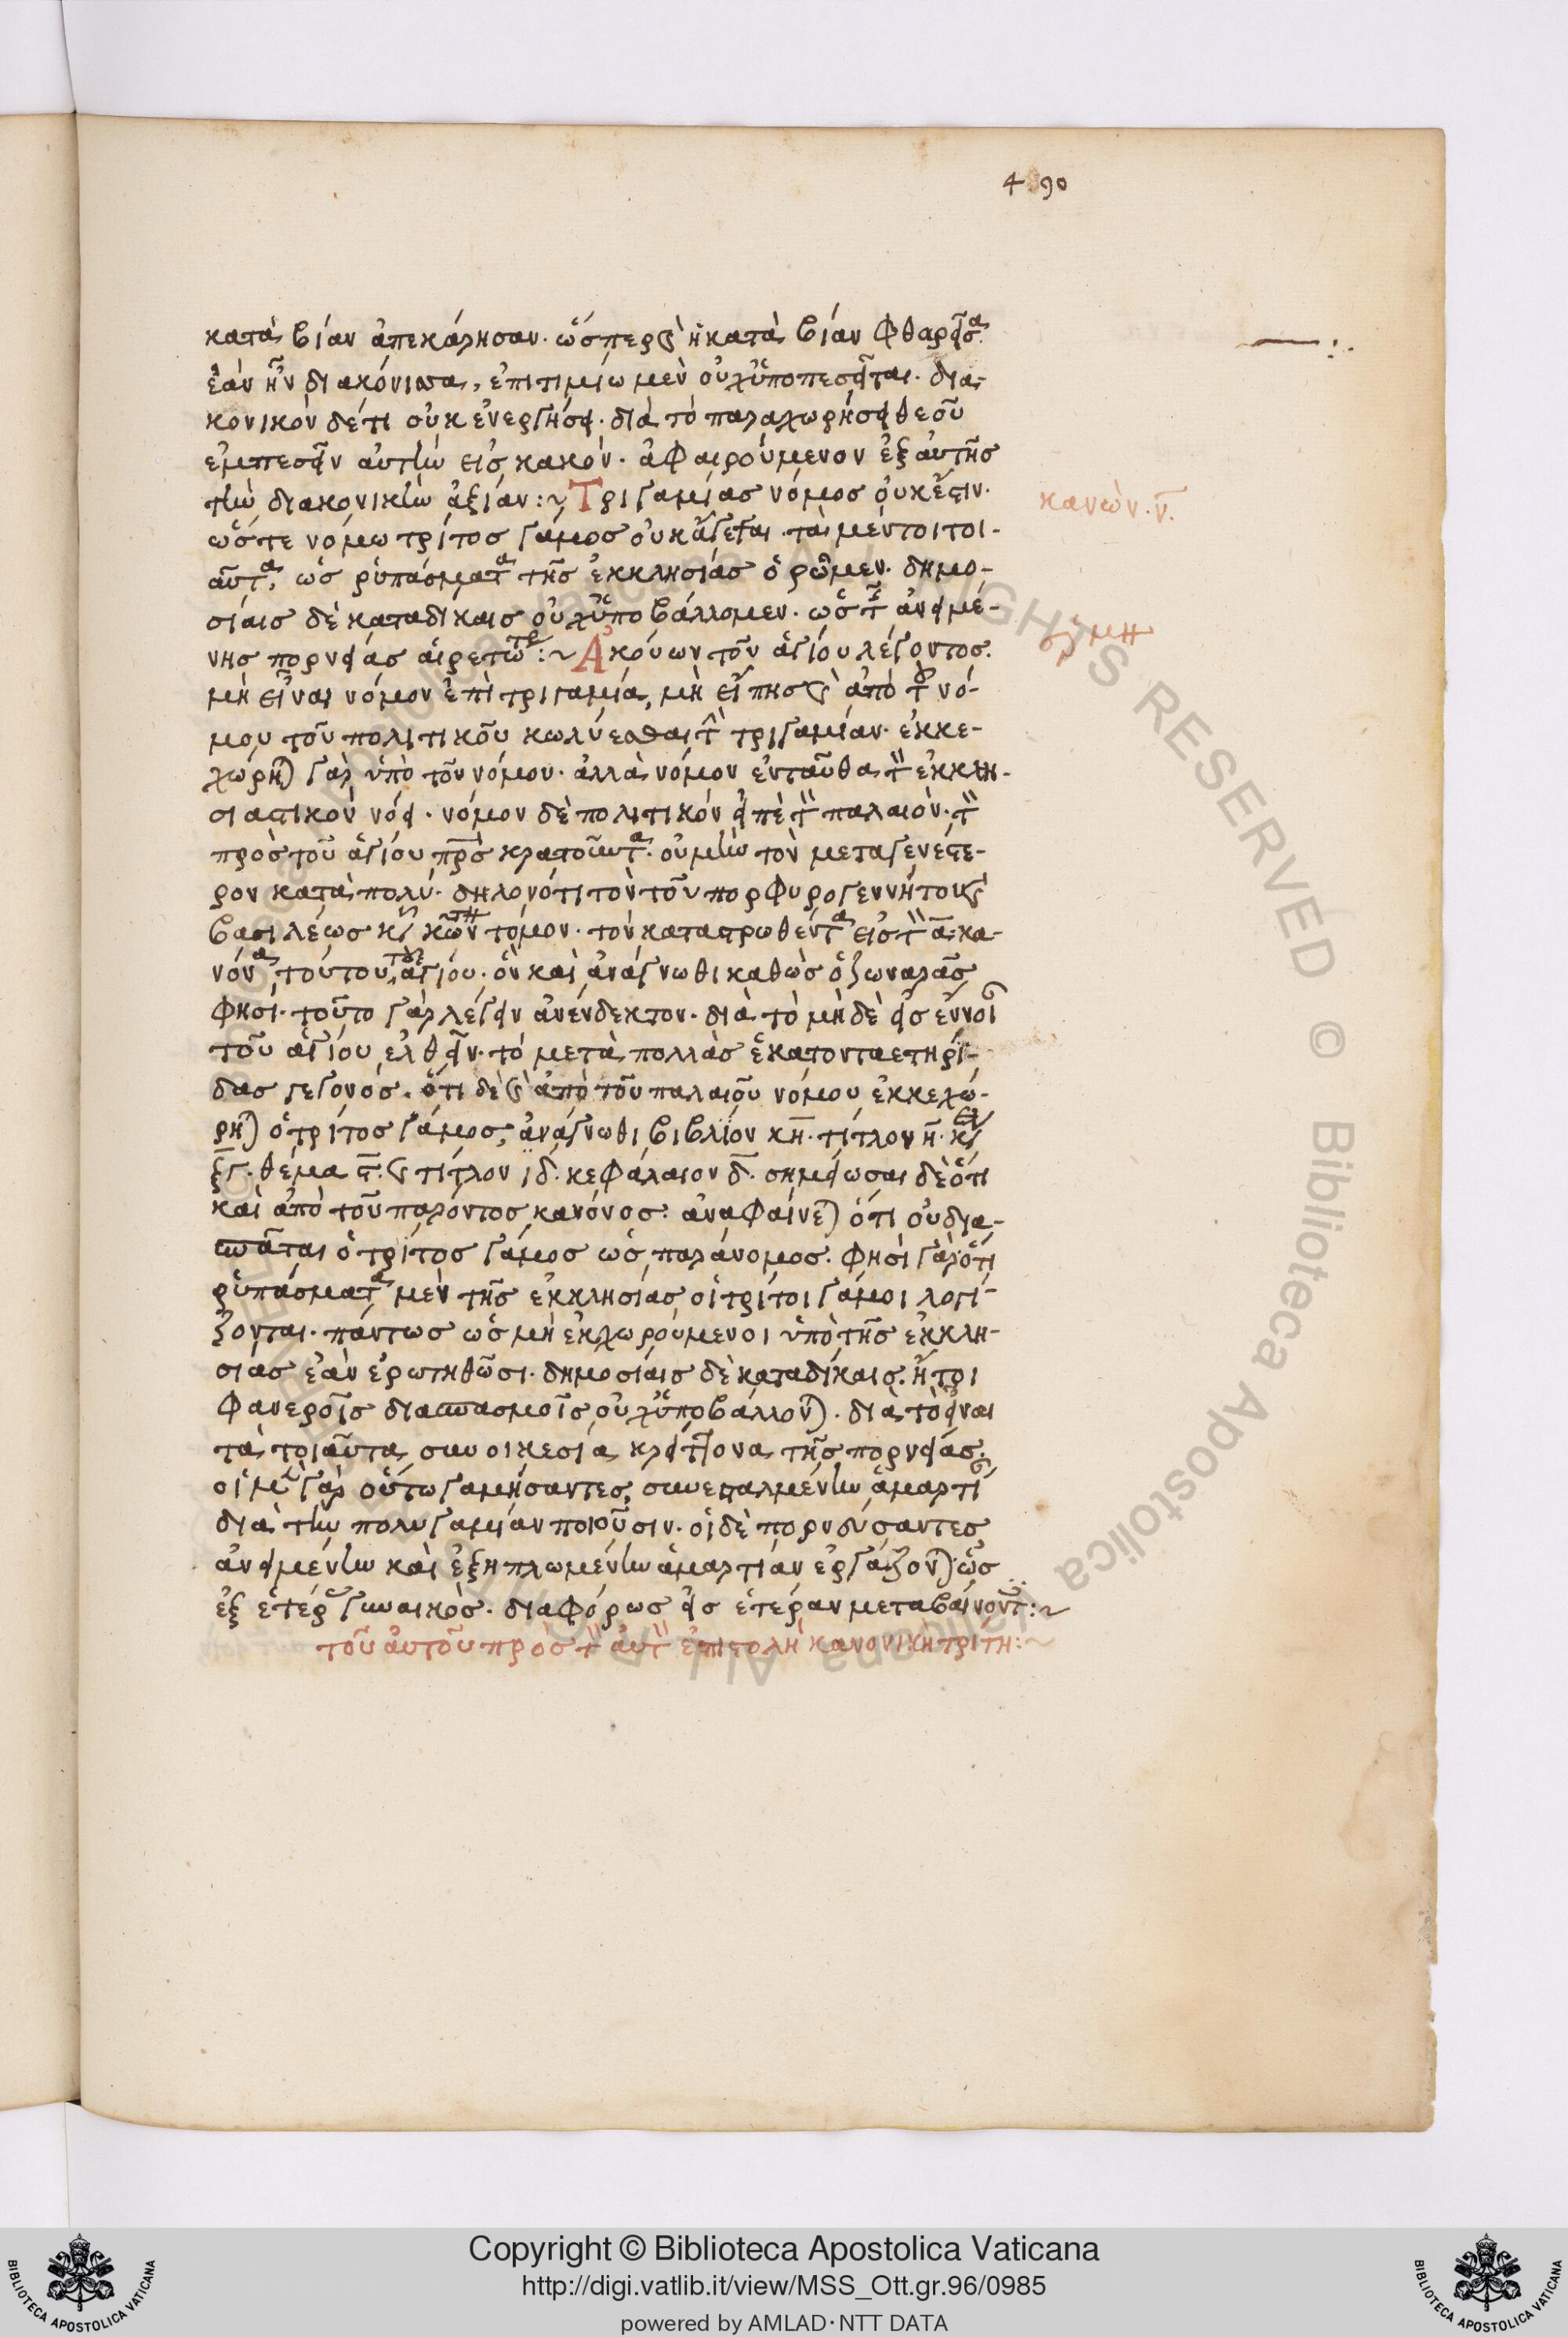 490
κατὰ βίαν ἀπεκάρησαν. ὥσπερ καὶ ἡ κατὰ βίαν φθαρεῖσα.
ἐὰν ἦν διακόνισσα, ἐπιτιμίω μὲν οὐχ ὑποπεσεῖται. δια-
κονικὸν δέ τι οὐκ ἐνεργήσει. διὰ τὸ παραχωρήσει θεοῦ
ἐμπεσεῖν αὐτὴν εἰς κακὸν. ἀφαιρούμενον ἐξ αὐτῆς
τὴν διακονικὴν ἀξίαν:~ Τριγαμίας νόμος οὐκ ἔστιν.
κανὼν. ν.
ὥστε νόμω τρίτος γάμος οὐκ ἄγεται. τὰ μέντοι τοι-
αῦτα, ὡς ῥυπάσματα τῆς ἐκκλησίας ὁρῶμεν. δημο-
σίαις δὲ καταδίκαις οὐχ ὑποβάλλομεν. ὡς τῆς ἀνειμέ-
νης πορνείας αἱρετώτερα:~ Ἀκούων τοῦ ἁγίου λέγοντος.
μὴ εἶναι νόμον ἐπὶ τριγαμία, μὴ εἴπης καὶ ἀπὸ τοῦ νό-
μου τοῦ πολιτικοῦ κωλύεσθαι τὴν τριγαμίαν. ἐκκε-
χώρηται γὰρ ὑπὸ τοῦ νόμου. ἀλλὰ νόμον ἐνταῦθα τὸν ἐκκλη-
σιαστικὸν νόει. νόμον δὲ πολιτικόν εἰπὲ τὸν παλαιὸν. τὸν
πρὸ τοῦ ἁγίου πρς κρατοῦντα. οὐ μὴν τὸν μεταγενέστε-
ρον κατὰ πολύ. δηλονότι τὸν τοῦ πορφυρογεννήτου καὶ
βασιλέως κυροῦ κων τόμον. τὸν καταστρωθέντα εἰς τὸν α κα-
νόνα τούτου τοῦ ἁγίου. ὃν καὶ ἀνάγνωθι καθὼς ὁ ζωναρᾶς
φησί. τοῦτο γὰρ λέγειν ἀνένδεκτον. διὰ τὸ μὴ δὲ εἰς ἔννοιαν
τοῦ ἁγίου ἐλθεῖν. τὸ μετὰ πολλὰς ἑκατονταετηρί-
δας γεγονός. ὅτι δὲ καὶ ἀπὸ τοῦ παλαιοῦ νόμου ἐκκεχώ-
ρηται ὁ τρίτος γάμος, ἀνάγνωθι βιβλίον κη. τίτλον η. κε
ξγ. θέμα ς. καὶ τίτλον ιδ. κεφάλαιον δ. σημείωσαι δὲ ὅτι
καὶ ἀπὸ τοῦ παρόντος κανόνος. ἀναφαίνεται ὅτι οὐ δια-
σπᾶται ὁ τρίτος γάμος ὡς παράνομος. φησὶ γὰρ ὅτι
ῥυπάσματα μὲν τῆς ἐκκλησίας οἱ τρίτοι γάμοι λογί-
ζονται. πάντως ὡς μὴ ἐκχωρούμενοι ὑπὸ τῆς ἐκκλη-
σίας ἐὰν ἐρωτηθῶσι. δημοσίαις δὲ καταδίκαις. ἤτοι
φανεροῖς διασπασμοῖς οὐχ ὑποβάλλονται. διὰ τὸ εἶναι
τὰ τοιαῦτα συνοικεσία κρείττονα τῆς πορνείας.
οἱ μὲν γὰρ οὕτω γαμήσαντες, συνεσταλμένην ἁμαρτίαν
διὰ τὴν πολυγαμίαν ποιοῦσιν. οἱ δὲ πορνεύσαντες
ἀνειμένην καὶ ἐξηπλωμένην ἁμαρτίαν ἐργάζονται ὡς
ἐξ ἑτέρας γυναικὸς. διαφόρως εἰς ἑτέραν μεταβαίνοντες:~
τοῦ αὐτοῦ πρὸς τὸν αὐτὸν ἐπιστολὴ κανονικὴ τρίτη:~
Copyright © Biblioteca Apostolica Vaticana
http://digi.vatlib.it/view/MSS_Ott.gr.96/0985
powered by AMLAD·NTT DATA
BIBLIOTECA APOSTOLICA VATICANA
BIBLIOTECA APOSTOLICA VATICANA